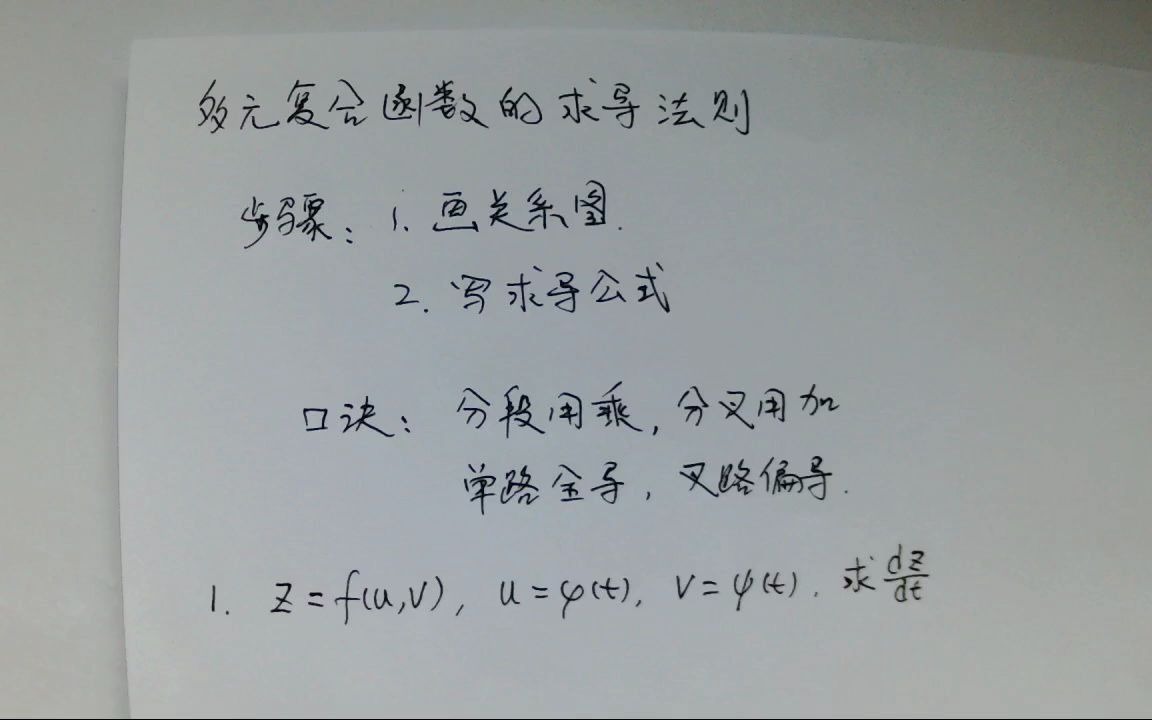 多元复合函数的求导法则
步骤: 1. 画关系图.
2. 写求导公式
口诀: 分段用乘, 分叉用加
单路全导, 叉路偏导.
1. z = f(u,v), u = φ(t), v = ψ(t). 求 dz/dt